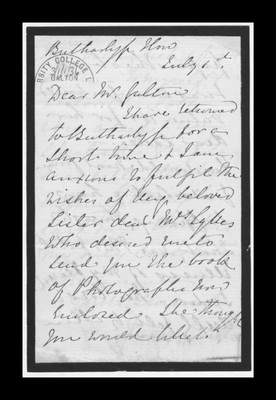 July 1st
Dear Mr. Galton
I have returned
to Butharlyp for a
short time & I am
anxious to fulfil the
wishes of my beloved
Sister dear Mrs Sykes
who desired me to
send you the book
of Photographs now
enclosed. She thought
you would like it